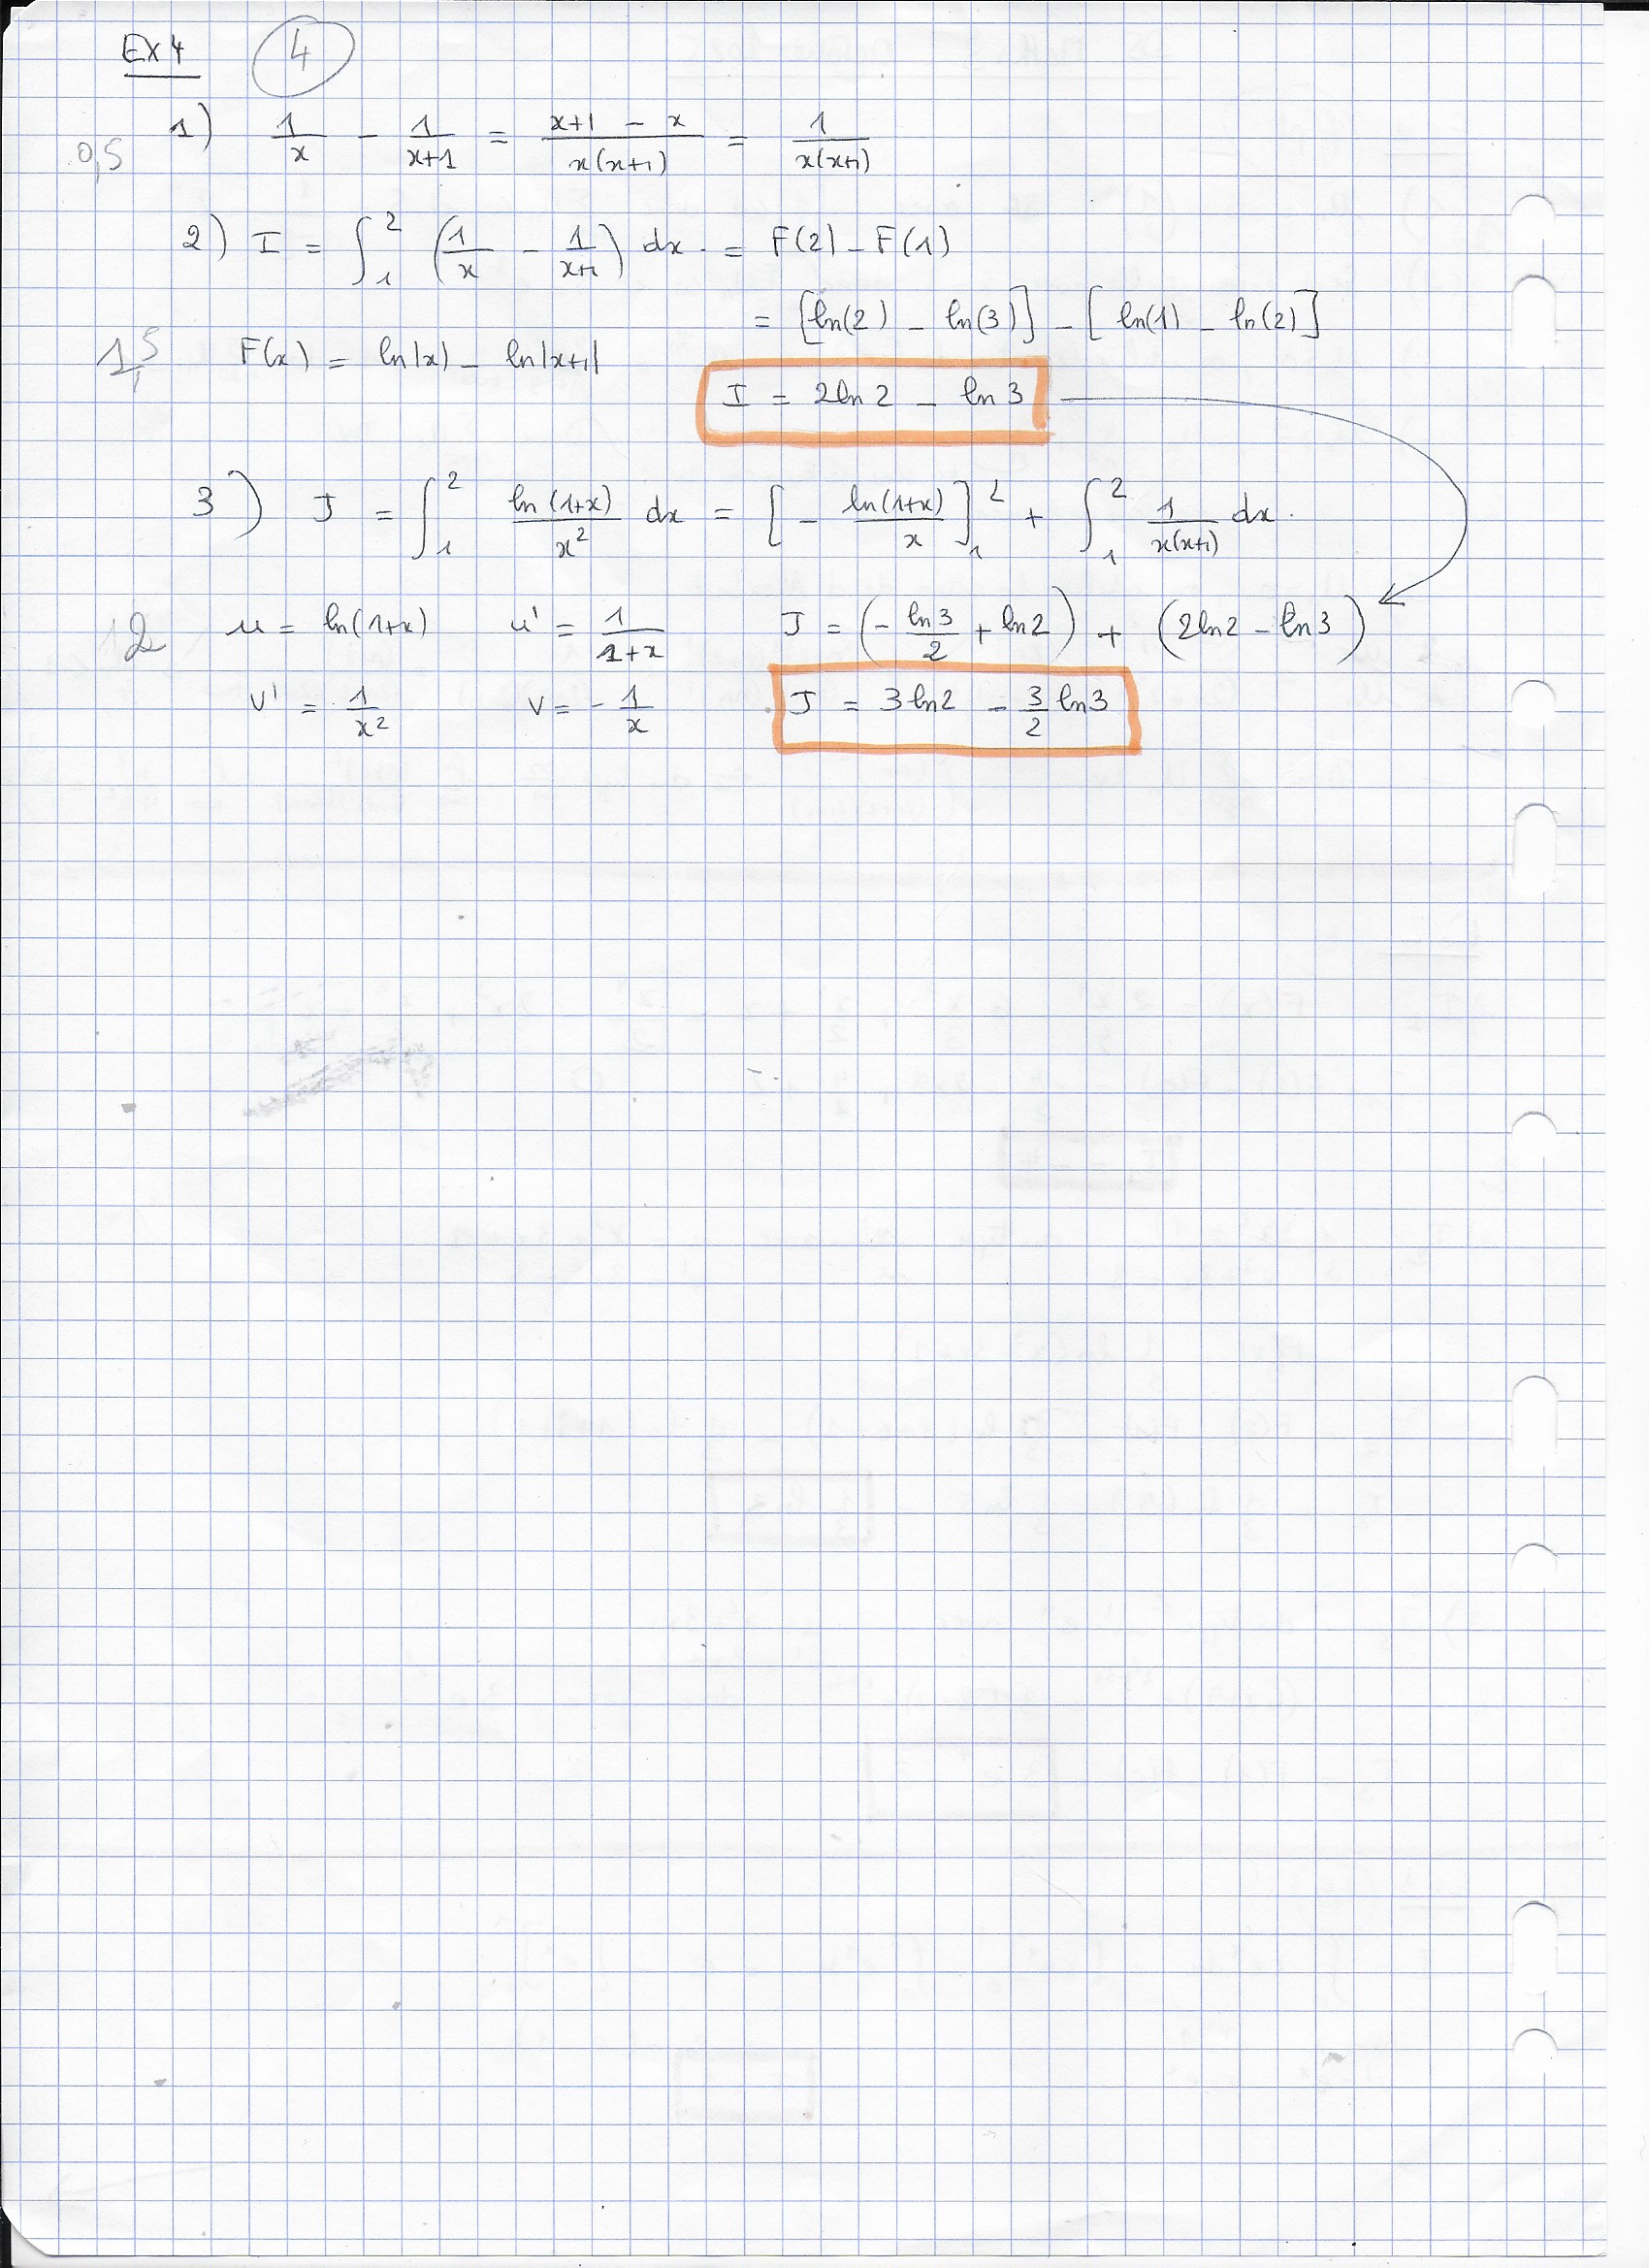 Ex 4 4
1) 1/x - 1/(x+1) = (x+1 - x)/(x(x+1)) = 1/(x(x+1))
0,5
2) I = ∫₁² (1/x - 1/(x+1)) dx = F(2) - F(1)
= [ln(2) - ln(3)] - [ln(1) - ln(2)]
1,5 F(x) = ln|x| - ln|x+1|
I = 2ln2 - ln3
3) J = ∫₁² ln(1+x)/x² dx = [- ln(1+x)/x]₁² + ∫₁² 1/(x(x+1)) dx.
2 u = ln(1+x) u' = 1/(1+x) J = (- ln3/2 + ln2) + (2ln2 - ln3)
v' = 1/x² v = - 1/x J = 3ln2 - 3/2 ln3